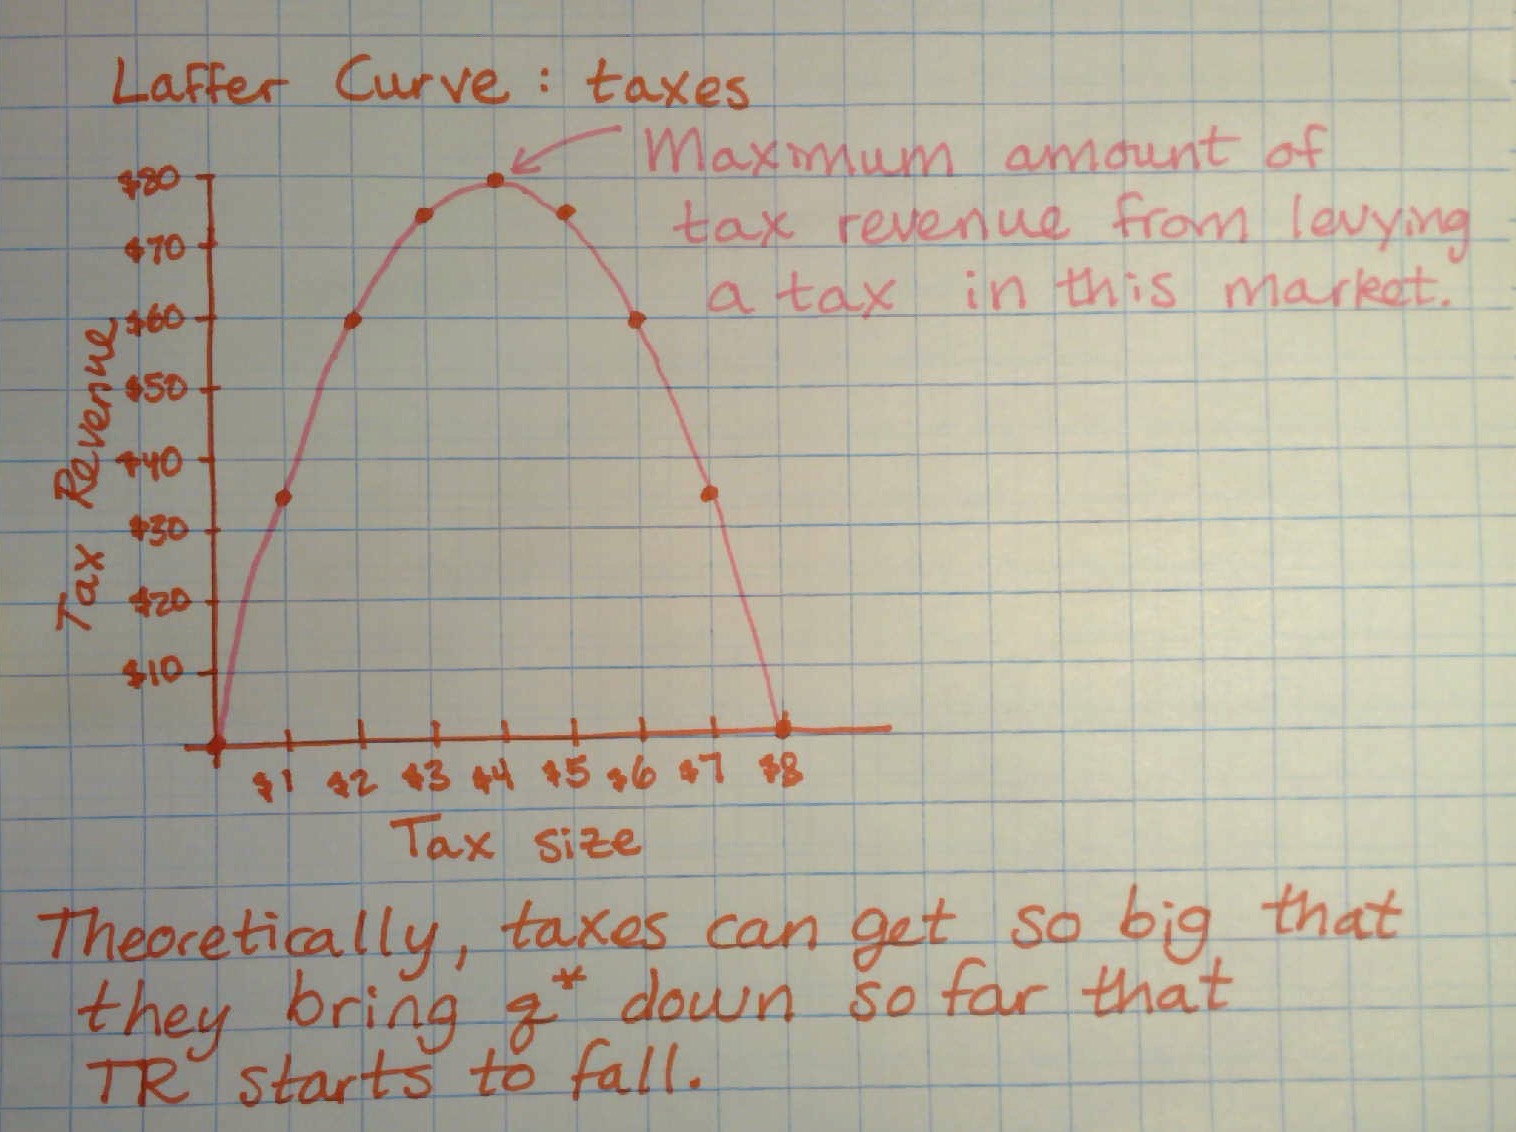 Laffer Curve: taxes
Maximum amount of
tax revenue from levying
a tax in this market.
$80
$70
$60
$50
$40
$30
$20
$10
Tax Revenue
$1 $2 $3 $4 $5 $6 $7 $8
Tax size
Theoretically, taxes can get so big that
they bring q* down so far that
TR starts to fall.